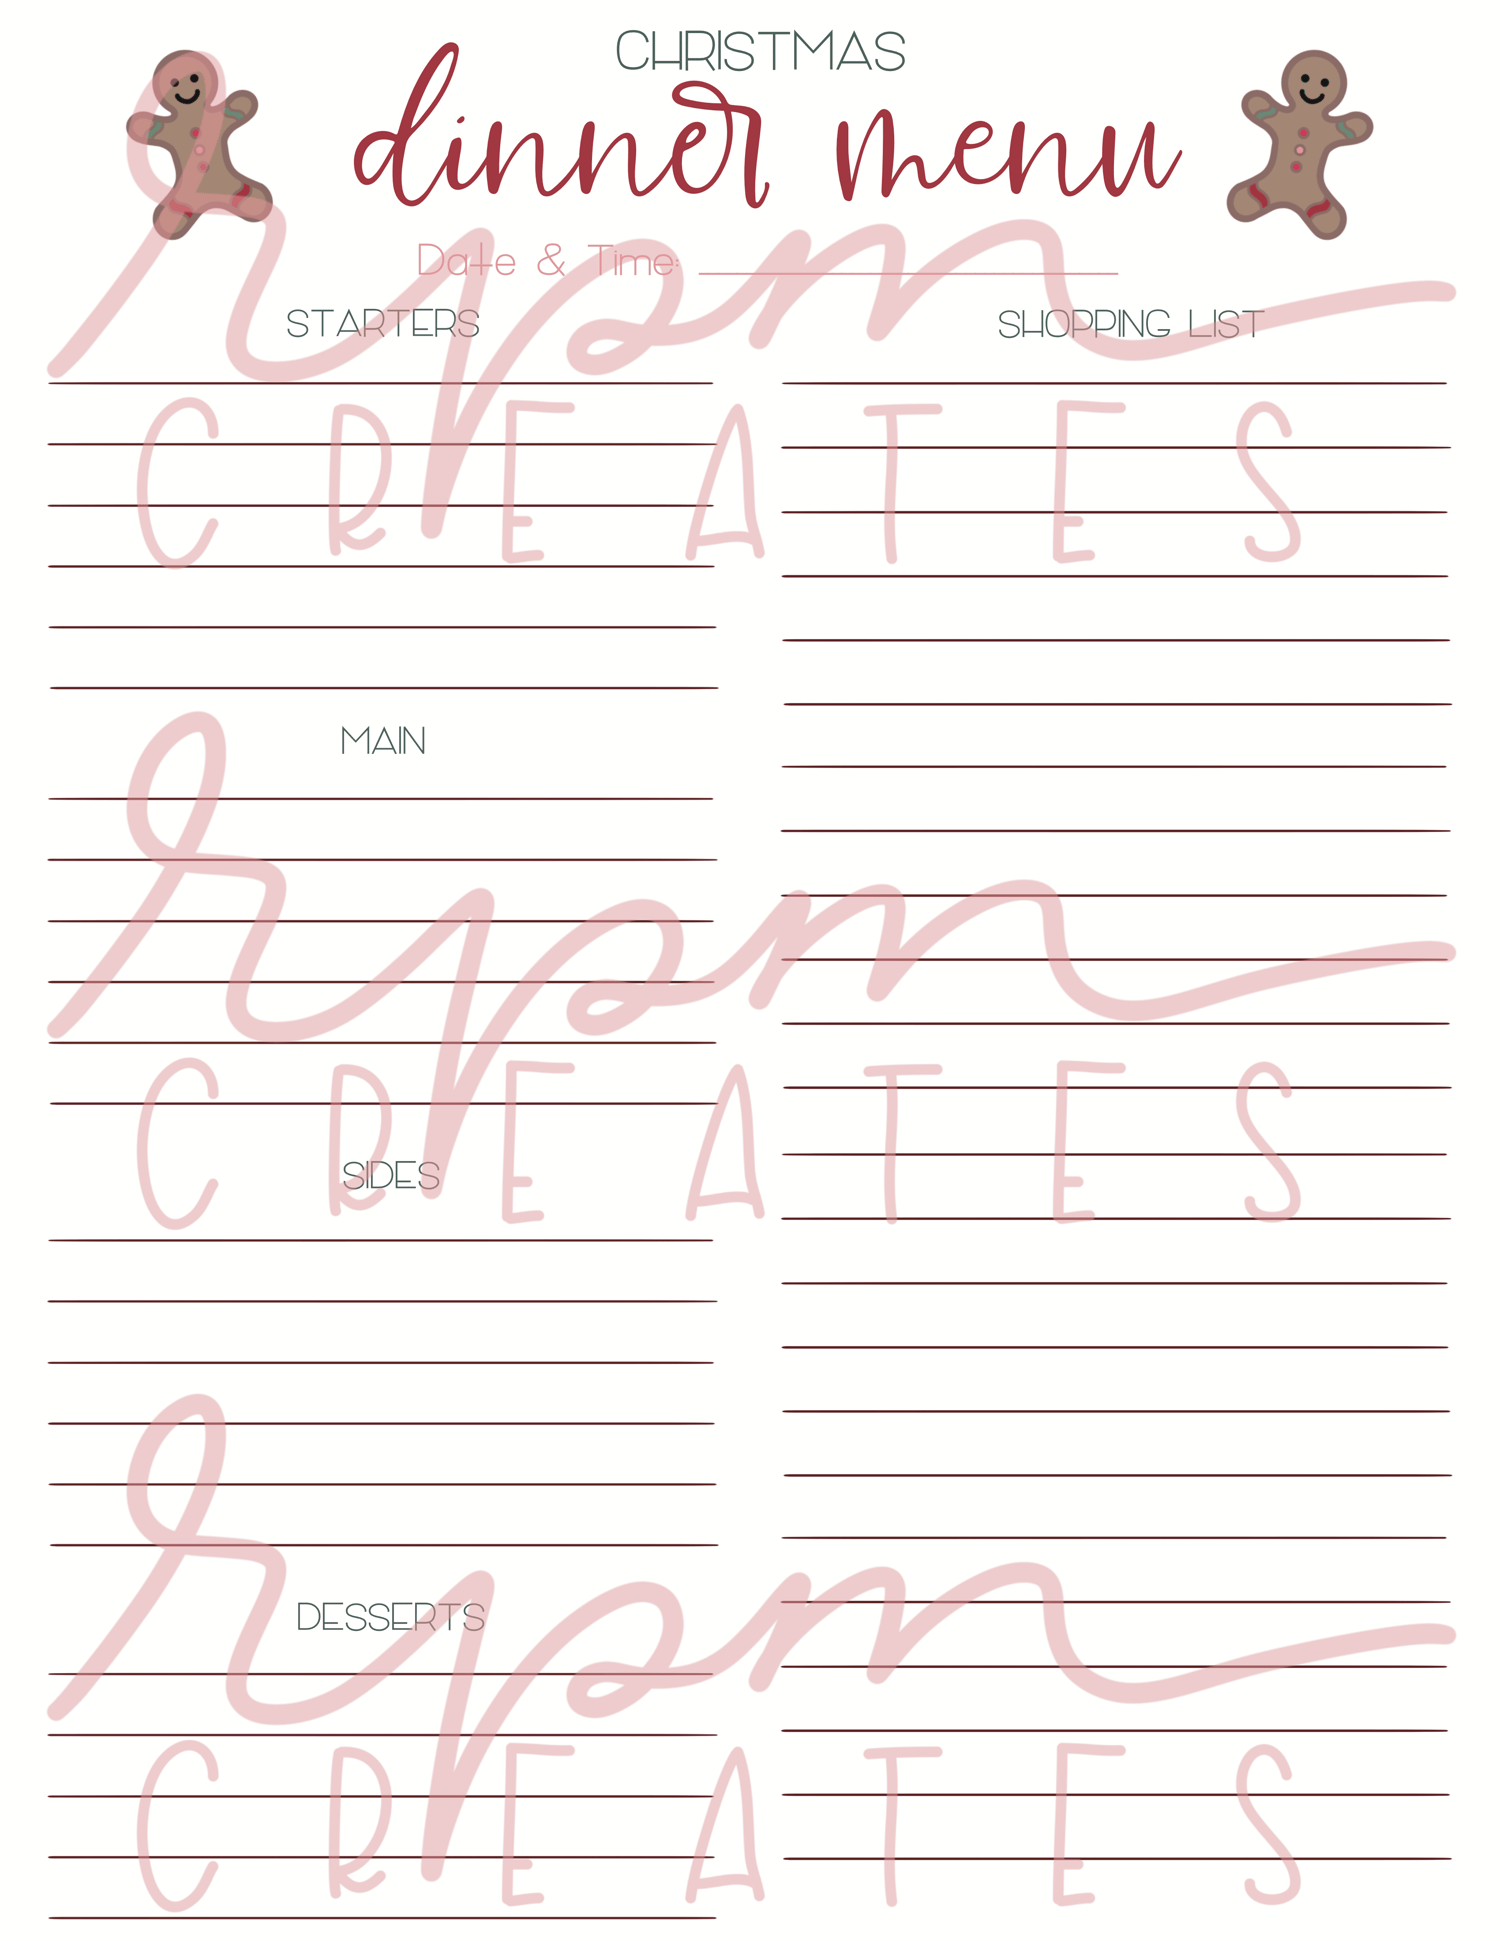 CHRISTMAS
dinner menu
Date & Time:
STARTERS
SHOPPING LIST
rpm
CREATES
MAIN
rpm
CREATES
SIDES
DESSERTS
rpm
CREATES